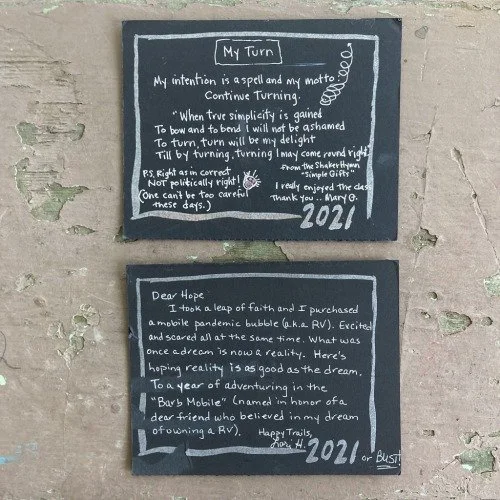 My Turn
My intention is a spell and my motto:
Continue Turning.
"When true simplicity is gained
To bow and to bend I will not be ashamed
To turn, turn will be my delight
Till by turning, turning I may come round right"
from the Shaker Hymn
"Simple Gifts"
P.S. Right as in correct
NOT politically right!
(One can't be too careful
these days.)
I really enjoyed the class
Thank you.. Mary G.
2021
Dear Hope
I took a leap of faith and I purchased
a mobile pandemic bubble (a.k.a RV). Excited
and scared all at the same time. What was
once a dream is now a reality. Here's
hoping reality is as good as the dream.
To a year of adventuring in the
"Barb Mobile" (named in honor of a
dear friend who believed in my dream
of owning a RV). Happy Trails,
Lori H.
2021 or BUST!